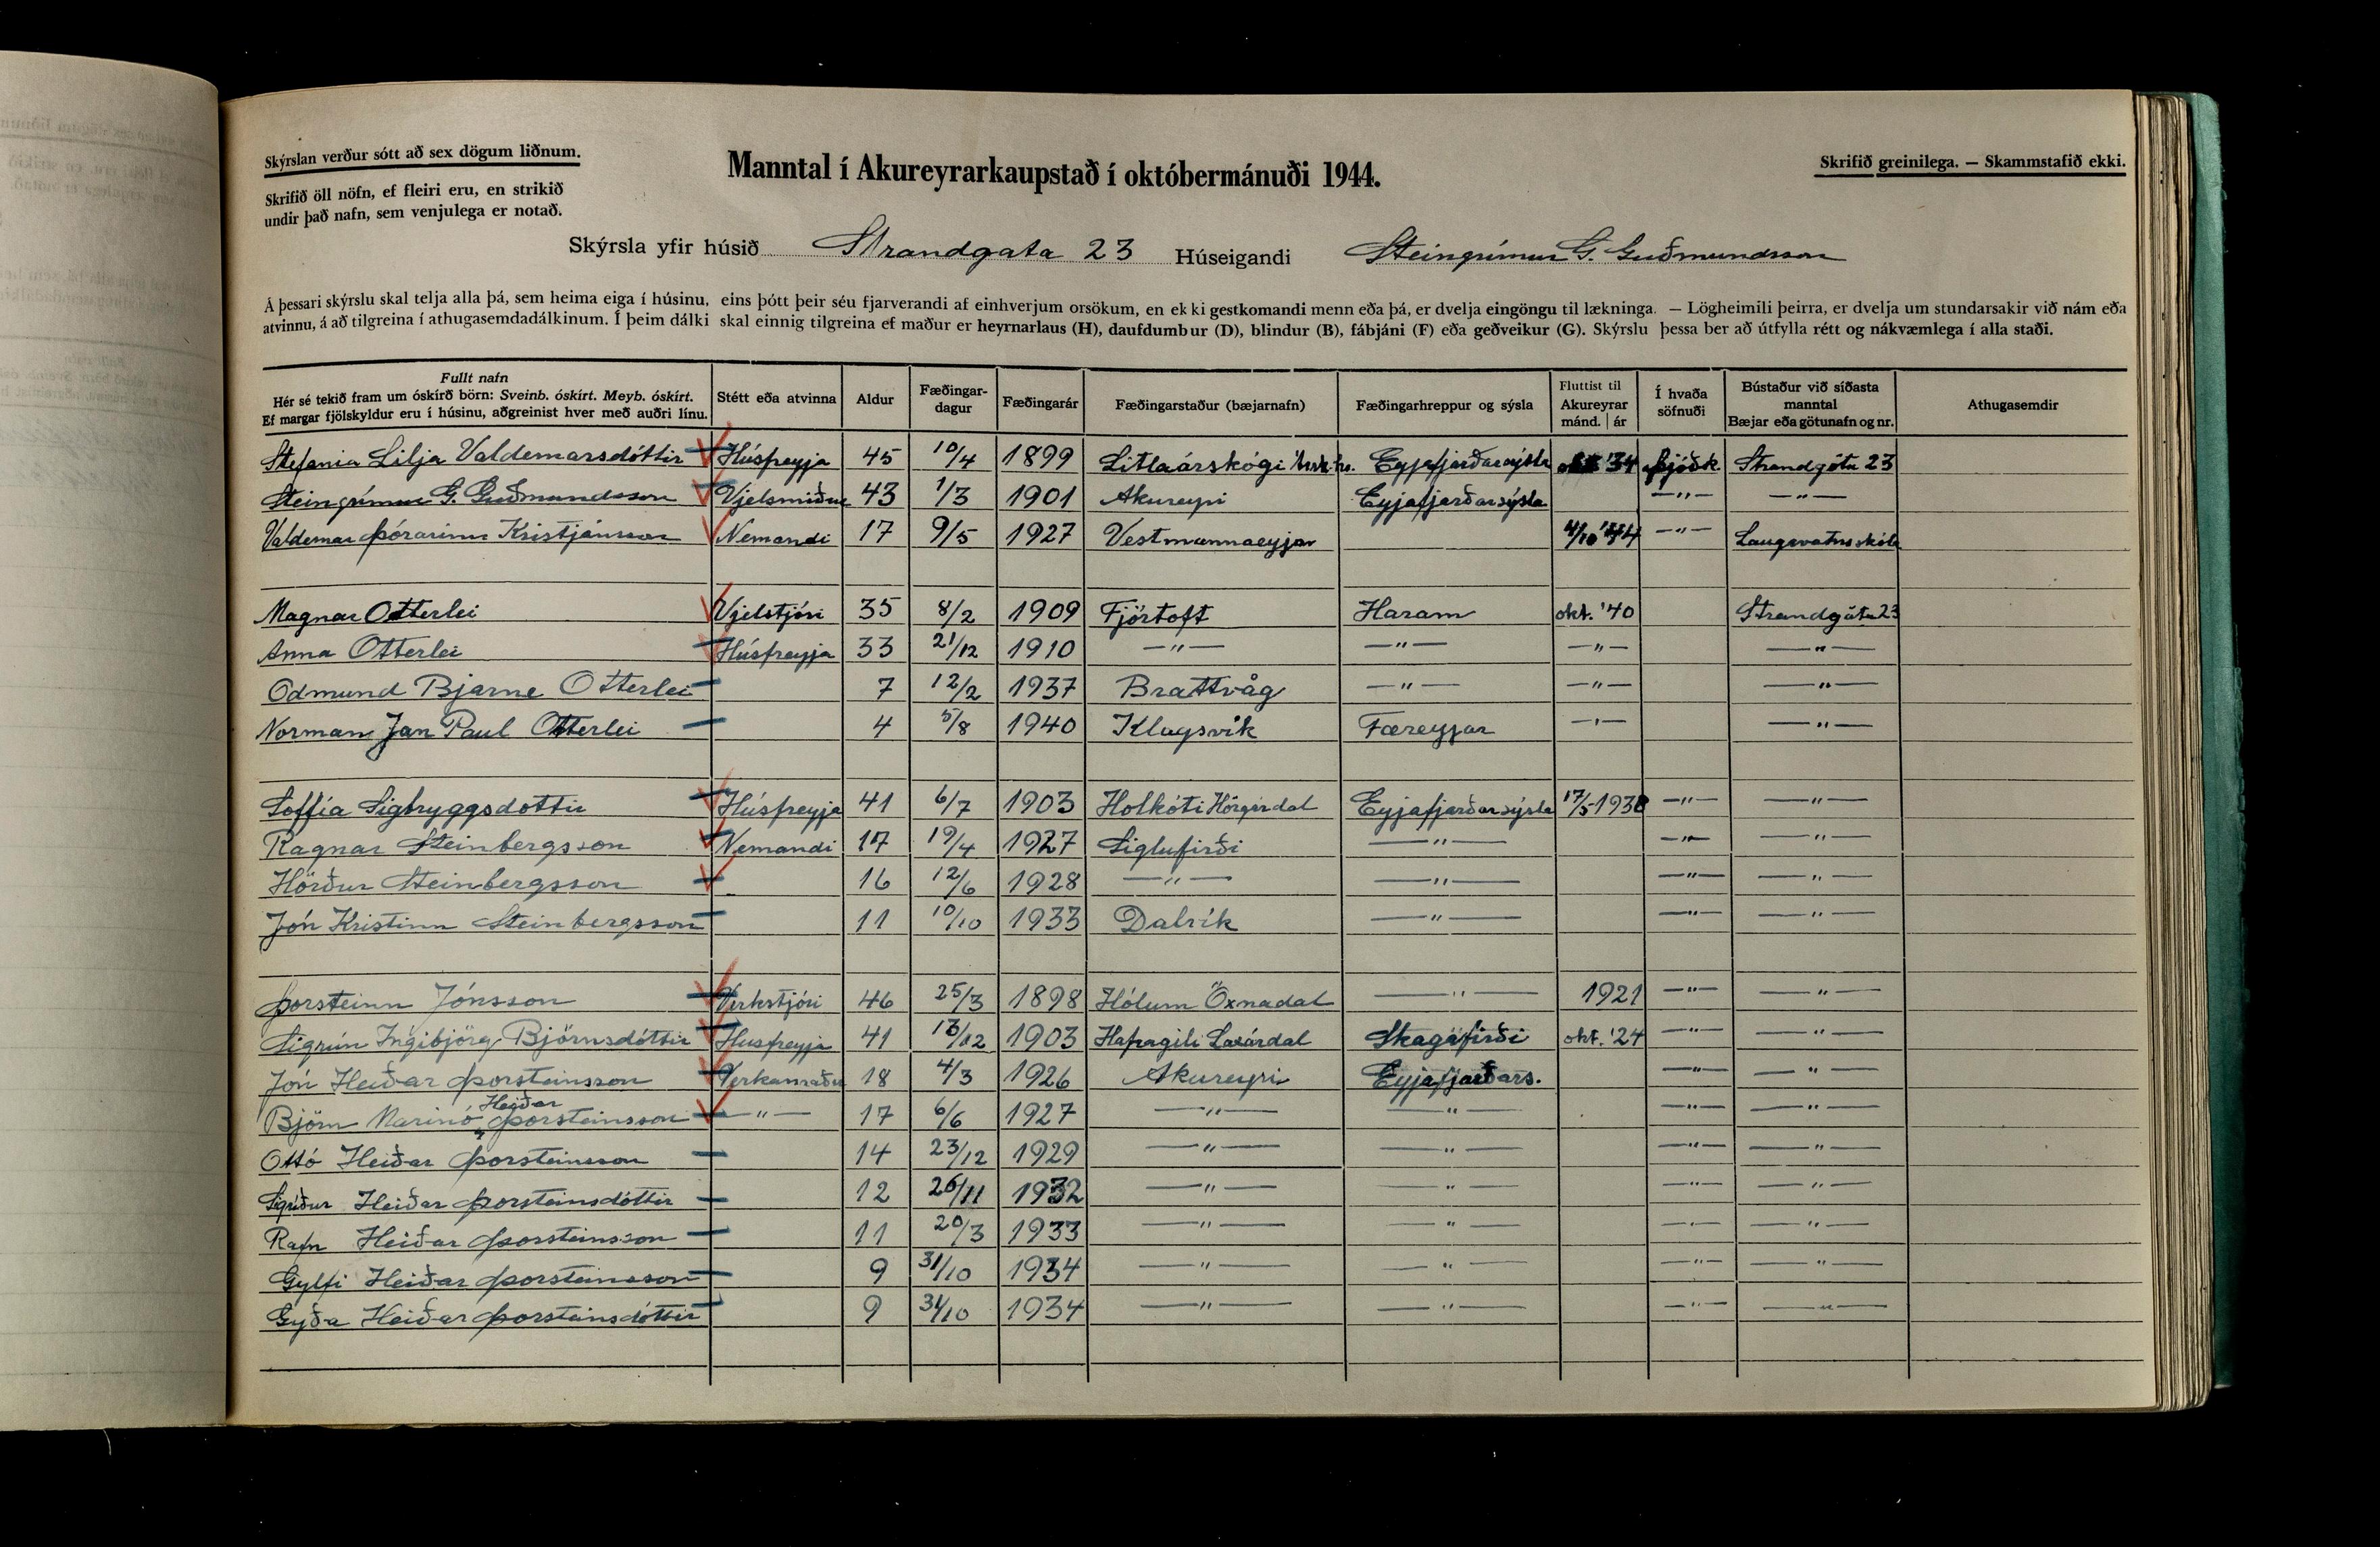 Skýrslan verður sótt að sex dögum liðnum.
Skrifið öll nöfn, ef fleiri eru, en strikið
undir það nafn, sem venjulega er notað.
Manntal í Akureyrarkaupstað í októbermánuði 1944.
Skrifið greinilega. — Skammstafið ekki.
Skýrsla yfir húsið Strandgata 23 Húseigandi Steingrímur G. Guðmundsson
Á þessari skýrslu skal telja alla þá, sem heima eiga í húsinu, eins þótt þeir séu fjarverandi af einhverjum orsökum, en ekki gestkomandi menn eða þá, er dvelja eingöngu til lækninga. — Lögheimili þeirra, er dvelja um stundarsakir við nám eða
atvinnu, á að tilgreina í athugasemdadálkinum. Í þeim dálki skal einnig tilgreina ef maður er heyrnarlaus (H), daufdumbur (D), blindur (B), fábjáni (F) eða geðveikur (G). Skýrslu þessa ber að útfylla rétt og nákvæmlega í alla staði.
Fullt nafn
Hér sé tekið fram um óskírð börn: Sveinb. óskírt. Meyb. óskírt.
Ef margar fjölskyldur eru í húsinu, aðgreinist hver með auðri línu.
Stétt eða atvinna
Aldur
Fæðingar-
dagur
Fæðingarár
Fæðingarstaður (bæjarnafn)
Fæðingarhreppur og sýsla
Fluttist til
Akureyrar
mánd. | ár
Í hvaða
söfnuði
Bústaður við síðasta
manntal
Bæjar eða götunafn og nr.
Athugasemdir
Stefania Lilja Valdemarsdóttir Húsfreyja 45 10/4 1899 Litlaárskógi Eyjafjarðarsýsla okt '34 þjóðk. Strandgötu 23
Steingrímur G. Guðmundsson Vjelsmiður 43 1/3 1901 Akureyri Eyjafjarðarsýsla —"— —"—
Valdemar Þórarinn Kristjánsson Nemandi 17 9/5 1927 Vestmannaeyjar 4/10 '44 —"— Laugarvatnsskóla
Magnar Otterlei Vjelstjóri 35 8/2 1909 Fjörtoft Haram okt. '40 Strandgötu 23
Anna Otterlei Húsfreyja 33 21/12 1910 —"— —"— —"— —"—
Odmund Bjarne Otterlei 7 12/2 1937 Brattvåg —"— —"— —"—
Norman Jan Paul Otterlei 4 5/8 1940 Klagsvik Færeyjar —"— —"—
Soffía Sigtryggsdottir Húsfreyja 41 6/7 1903 Holkóti Hörgárdal Eyjafjarðarsýsla 17/5 1938 —"— —"—
Ragnar Steinbergsson Nemandi 17 19/4 1927 Siglufirði —"— —"— —"—
Hörður Steinbergsson 16 12/6 1928 —"— —"— —"— —"—
Jón Kristinn Steinbergsson 11 10/10 1933 Dalvík —"— —"— —"—
Þorsteinn Jónsson Verkstjóri 46 25/3 1898 Hólum Öxnadal —"— 1921 —"— —"—
Sigrún Ingibjörg Björnsdóttir Húsfreyja 41 13/12 1903 Hafragili Laxárdal Skagafirði okt. '24 —"— —"—
Jón Heiðar Þorsteinsson Verkamaður 18 4/3 1926 Akureyri Eyjafjarðars. —"— —"—
Björn Marinó Heiðar Þorsteinsson —"— 17 6/6 1927 —"— —"— —"— —"—
Ottó Heiðar Þorsteinsson 14 23/12 1929 —"— —"— —"— —"—
Sigríður Heiðar Þorsteinsdóttir 12 26/11 1932 —"— —"— —"— —"—
Rafn Heiðar Þorsteinsson 11 20/3 1933 —"— —"— —"— —"—
Gylfi Heiðar Þorsteinsson 9 31/10 1934 —"— —"— —"— —"—
Gyða Heiðar Þorsteinsdóttir 9 31/10 1934 —"— —"— —"— —"—